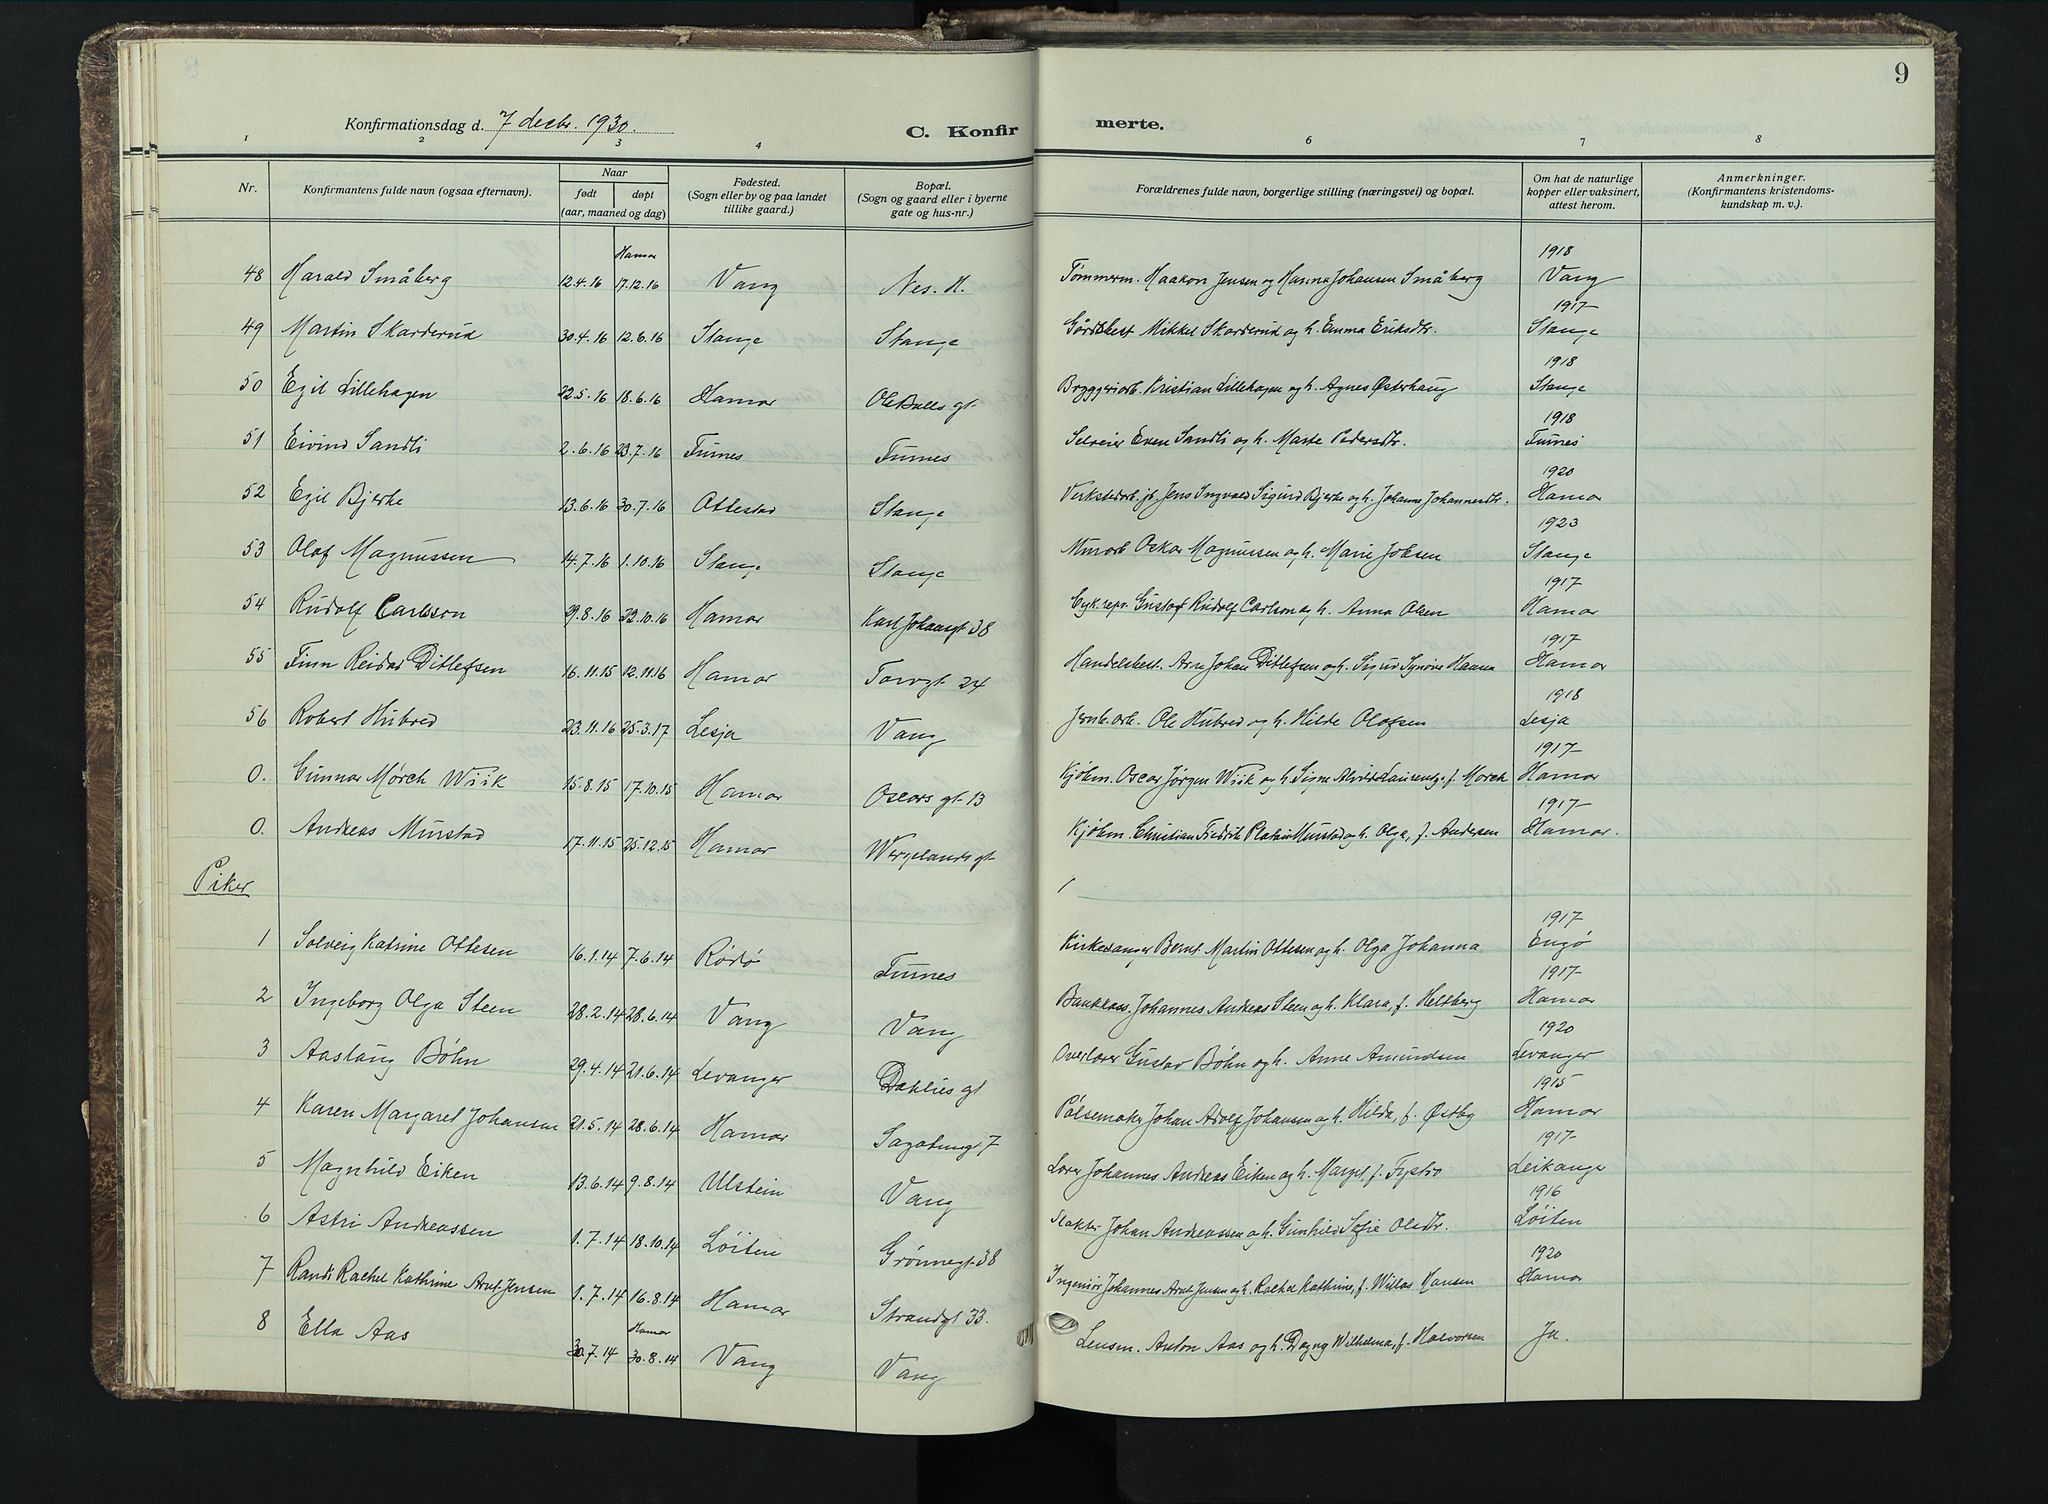 9
Konfirmationsdag d. 7 decbr. 1930.
C. Konfirmerte.
1 2 3 4 6 7 8
Nr. Konfirmantens fulde navn (ogsaa efternavn). Naar født døpt (aar, maaned og dag) Fødested. (Sogn eller by og paa landet tillike gaard.) Bopæl. (Sogn og gaard eller i byerne gate og hus-nr.) Forældrenes fulde navn, borgerlige stilling (næringsvei) og bopæl. Om hat de naturlige kopper eller vaksinert, attest herom. Anmerkninger. (Konfirmantens kristendoms-kundskap m. v.).
48 Harald Småberg 12.4.16 Hamar 17.12.16 Vang Nes. H. Tømmerm. Haakon Jensen og Hanna Johansen Småberg 1918 Vang
49 Martin Skarderud 30.4.16 12.6.16 Stange Stange Gårdbest Mikkel Skarderud og h. Emma Eriksdtr. 1917 Stange
50 Egil Lillehagen 22.5.16 18.6.16 Hamar Ole Bulls gt. Bryggeriarb. Kristian Lillehagen og h. Agnes Østerhaug 1918 Stange
51 Eivind Sandli 2.6.16 23.7.16 Furnes Furnes Selveier Even Sandli og h. Marte Pedersdtr. 1918 Furnes
52 Egil Bjerke 13.6.16 30.7.16 Ottestad Stange Verkstedarb. jb. Jens Ingvald Sigurd Bjerke og h. Johanne Johannesdtr. 1920 Hamar
53 Olaf Magnussen 14.7.16 1.10.16 Stange Stange Murarb Oskar Magnussen og h. Marie Johsen 1923 Stange
54 Rudolf Carlsson 29.8.16 22.10.16 Hamar Karl Johansgt 38 Cyk. repr. Gustaf Rudolf Carlson og h. Anna Olsen 1917 Hamar
55 Finn Reidar Ditlefsen 16.11.15 12.11.16 Hamar Torvgt. 24 Handelsbest. Arne Johan Ditlefsen og h. Sigrid Synøve Hansen 1917 Hamar
56 Robert Hubred 23.11.16 25.3.17 Lesja Vang Jernb.arb. Ole Hubred og h. Hilde Olafsen 1918 Lesja
0. Gunnar Mørch Wiik 15.8.15 17.10.15 Hamar Oscars gt. 13 Kjøbm. Oscar Jørgen Wiik og h. Signe f. Mørch 1917 Hamar
0. Andreas Murstad 17.11.15 25.12.15 Hamar Wergelands gt Kjøbm. Christian Fredrik Platou Murstad og h. Olga, f. Andersen 1917 Hamar.
Piker
1 Solveig Katrine Ottesen 16.1.14 7.6.14 Rødø Furnes Kirkesanger Bernt Martin Ottesen og h. Olga Johanna 1917 Engø
2 Ingeborg Olga Steen 28.2.14 28.6.14 Vang Vang Bankkass. Johannes Andreas Steen og h. Klara, f. Heltberg 1917 Hamar
3 Aaslaug Bøhn 29.4.14 21.6.14 Levanger Dahlies gt Overlærer Gustav Bøhn og h. Anne Amundsen 1920 Levanger
4 Karen Margaret Johansen 21.5.14 28.6.14 Hamar Sagatungt 7 Pølsemaker Johan Adolf Johansen og h. Hilda, f. Østby 1915 Hamar
5 Magnhild Eiken 13.6.14 9.8.14 Ulstein Vang Lærer Johannes Andreas Eiken og h. Marget, f. Fystro 1917 Leikanger
6 Astri Andreassen 1.7.14 18.10.14 Løiten Grønnegt. 38 Slakter Johan Andreassen og h. Gunhild Sofie Olsdtr. 1916 Løiten
7 Randi Rachel Kathrine Arnt-Jensen 1.7.14 16.8.14 Hamar Strandgt 33. Ingeniør Johannes Arnt Jensen og h. Rachel Kathrine, f. Willas Hansen 1920 Hamar
8 Ella Aas 30.7.14 Hamar 30.8.14 Vang Vang Lensm. Anton Aas og h. Dagny Wilhelmine, f. Halvorsen Ja.